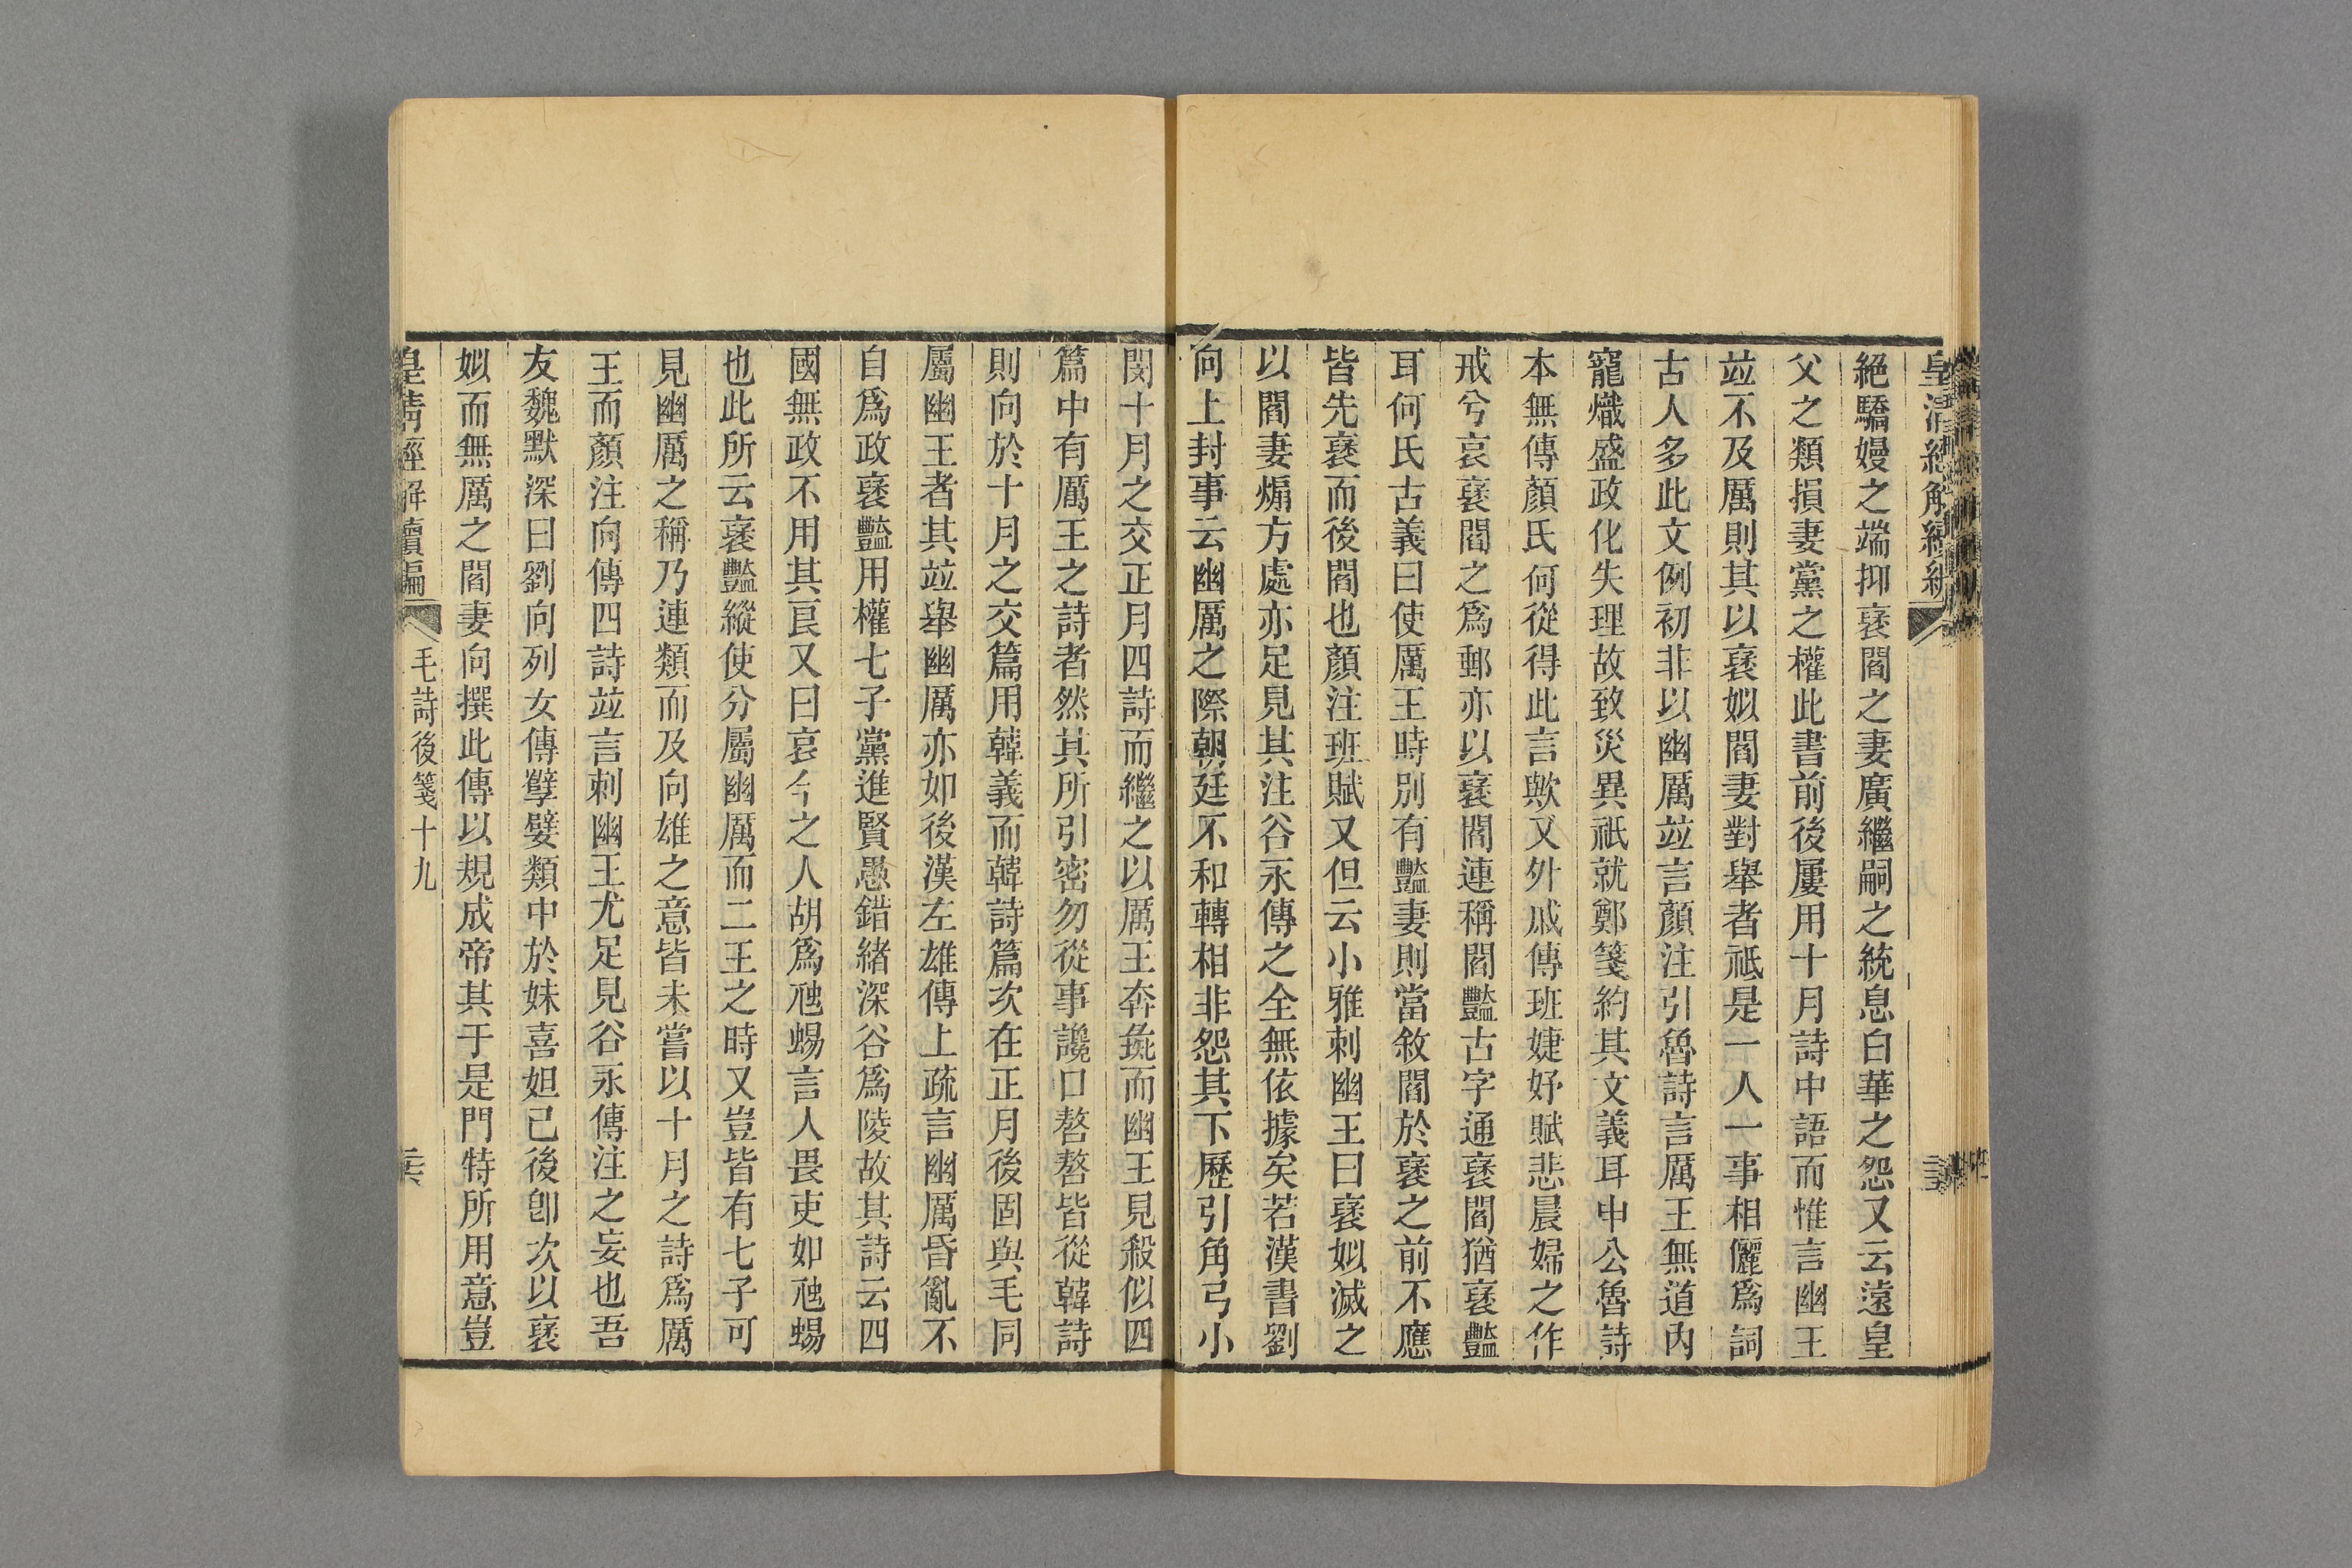 皇清經解續編
絕驕嫚之端抑裦閻之妻廣繼嗣之統息白華之怨又云遠皇
父之類損妻黨之權此書前後屢用十月詩中語而惟言幽王
竝不及厲則其以裦姒閻妻對舉者祇是一人一事相儷爲詞
古人多此文例初非以幽厲竝言顏注引魯詩言厲王無道內
寵熾盛政化失理故致災異祇就鄭箋約其文義耳申公魯詩
本無傳顏氏何從得此言歟又外戚傳班婕妤賦悲晨婦之作
戒兮哀裦閻之爲郵亦以裦閻連稱閻豔古字通裦閻猶裦豔
耳何氏古義曰使厲王時別有豔妻則當敘閻於裦之前不應
皆先裦而後閻也顏注班賦又但云小雅刺幽王曰裦姒滅之
以閻妻煽方處亦足見其注谷永傳之全無依據矣若漢書劉
向上封事云幽厲之際朝廷不和轉相非怨其下歷引角弓小
閔十月之交正月四詩而繼之以厲王奔彘而幽王見殺似四
篇中有厲王之詩者然其所引密勿從事讒口嗸嗸皆從韓詩
則向於十月之交篇用韓義而韓詩篇次在正月後固與毛同
屬幽王者其竝舉幽厲亦如後漢左雄傳上疏言幽厲昏亂不
自爲政裦豔用權七子黨進賢愚錯緒深谷爲陵故其詩云四
國無政不用其良又曰哀今之人胡爲虺蜴言人畏吏如虺蜴
也此所云裦豔縱使分屬幽厲而二王之時又豈皆有七子可
見幽厲之稱乃連類而及向雄之意皆未嘗以十月之詩爲厲
王而顏注向傳四詩竝言刺幽王尤足見谷永傳注之妄也吾
友魏默深曰劉向列女傳孼嬖類中於妹喜妲己後卽次以裦
姒而無厲之閻妻向撰此傳以規成帝其于是門特所用意豈
皇淸經解續編
毛詩後箋十九